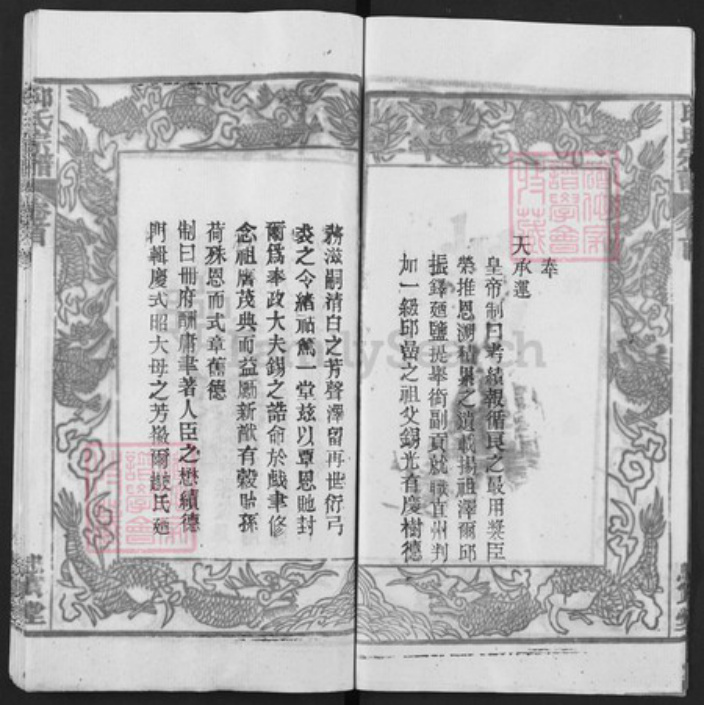 奉
天承運
皇帝制曰考績報循良之最用奬臣
榮推恩溯積累之遺載揚祖澤爾邱
振鐸廼鹽提舉銜副貢就職直州判
加一級邱嵒之祖父錫光有慶樹德
務滋嗣清白之芳聲澤留再世衍弓
裘之令緒祜篤一堂茲以覃恩貤封
爾爲奉政大夫錫之誥命於戲聿修
念祖膺茂典而益勵新猷有穀貽孫
荷殊恩而式章舊德
制曰冊府酬庸聿著人臣之懋績德
門輯慶式昭大母之芳徽爾 氏廼
邱氏宗譜
卷首
堂
FamilySearch